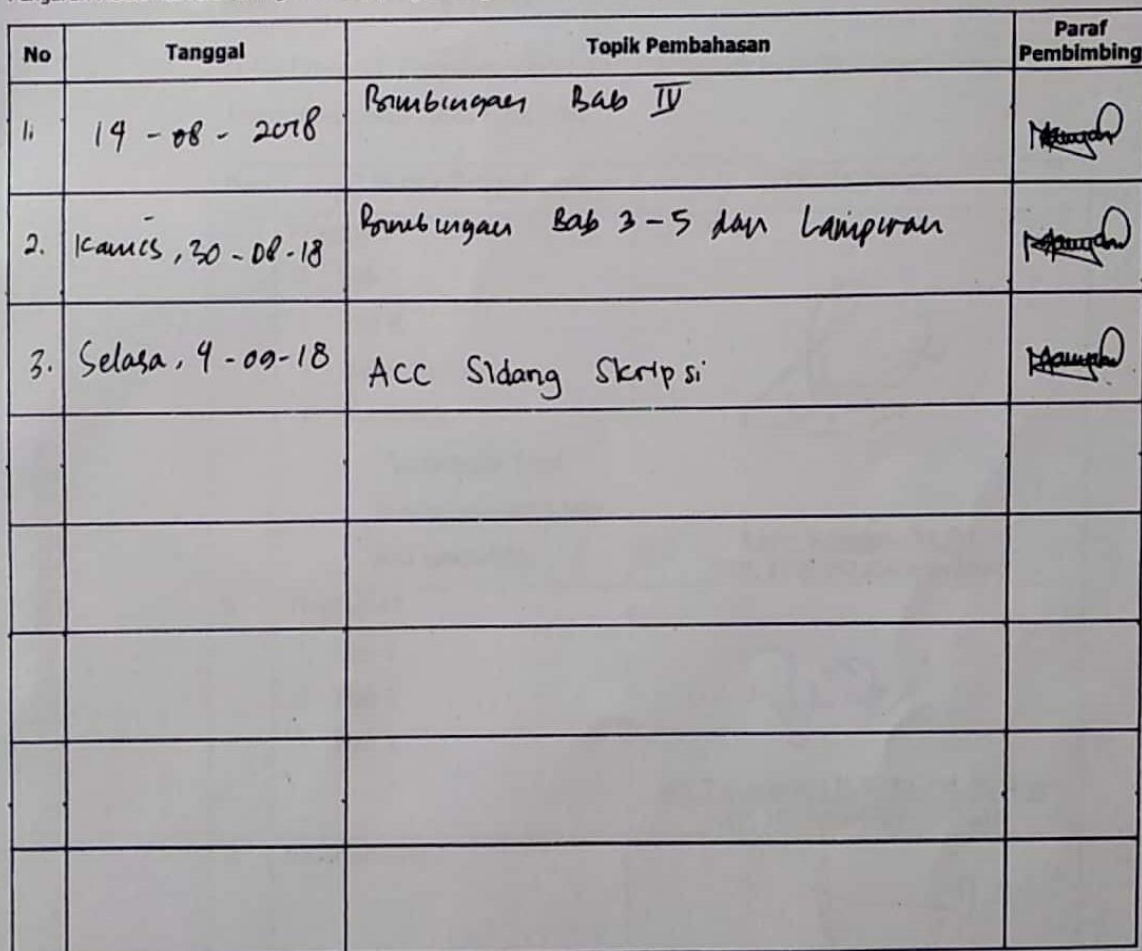 No Tanggal Topik Pembahasan Paraf Pembimbing
1. 14 - 08 - 2018 Bimbingan Bab IV
2. Kamis, 30 - 08 - 18 Bimbingan Bab 3 - 5 dan Lampiran
3. Selasa, 4 - 09 - 18 ACC Sidang Skripsi